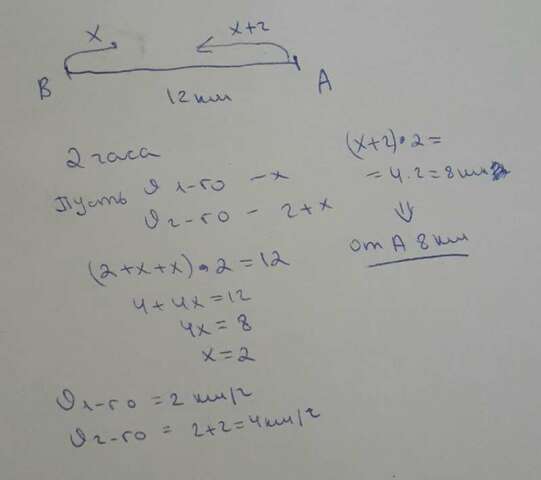 x
x+2
B
A
12 км
2 часа
Пусть v 1-го - x
v 2-го - 2+x
(2+x+x)•2=12
4+4x=12
4x=8
x=2
v 1-го = 2 км/ч
v 2-го = 2+2=4км/ч
(x+2)•2=
=4•2=8км
⇓
от A 8 км